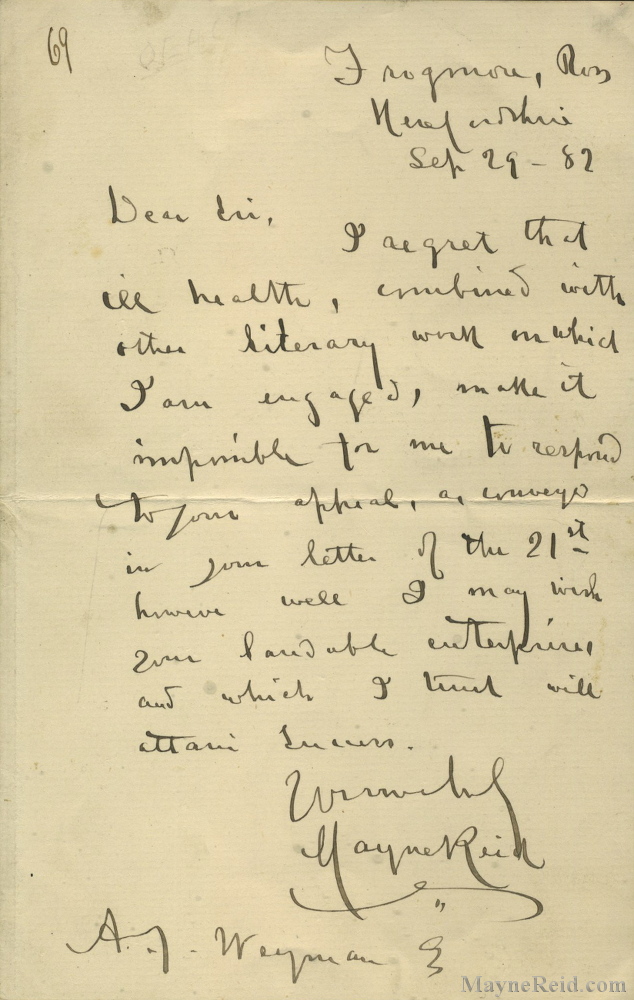 69
Frogmore, Ross
Herefordshire
Sep 29 - 82
Dear Sir,
I regret that
ill health, combined with
other literary work on which
I am engaged, make it
impossible for me to respond
to your appeal, as conveyed
in your letter of the 21st
however well I may wish
your laudable enterprise,
and which I trust will
attain success.
Yours truly
Mayne Reid
A. J. Weyman
MayneReid.com